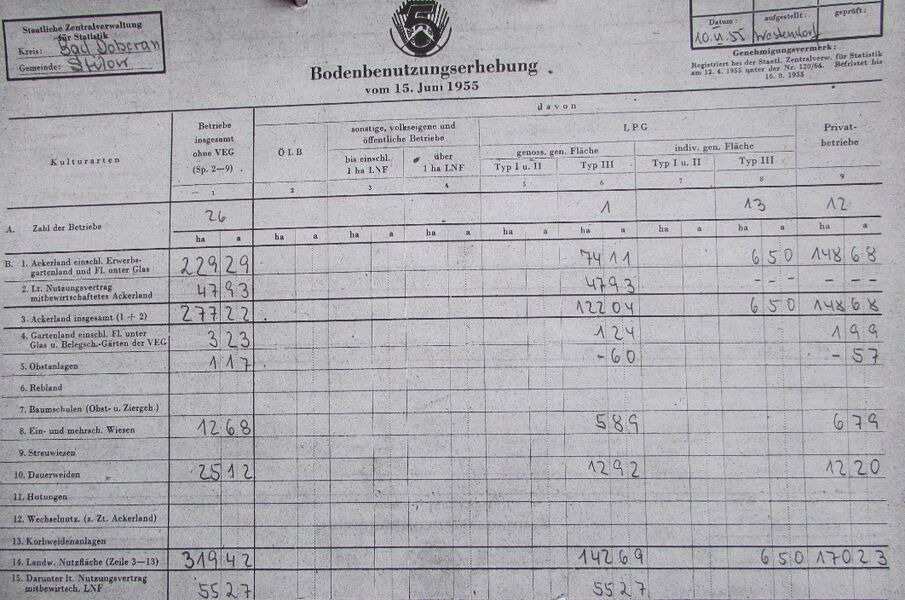 Staatliche Zentralverwaltung
für Statistik
Kreis: Bad Doberan
Gemeinde:
5
Datum: aufgestellt: geprüft:
Genehmigungsvermerk:
Registriert bei der Staatl. Zentralverw. für Statistik
am 12. 4. 1955 unter der Nr. 120/64. Befristet bis
16. 8. 1955
Bodenbenutzungserhebung
vom 15. Juni 1955
Kulturarten
Betriebe insgesamt ohne VEG (Sp. 2—9)
davon
ÖLB
sonstige, volkseigene und öffentliche Betriebe
LPG
Privatbetriebe
bis einschl. 1 ha LNF
über 1 ha LNF
genoss. gen. Fläche
indiv. gen. Fläche
Typ I u. II Typ III Typ I u. II Typ III
— 1 2 3 4 5 6 7 8 9
A. Zahl der Betriebe 26 1 13 12
ha a ha a ha a ha a ha a ha a ha a ha a ha a
B. 1. Ackerland einschl. Erwerbs-
gartenland und Fl. unter Glas 229 29 74 11 6 50 148 68
2. Lt. Nutzungsvertrag
mitbewirtschaftetes Ackerland 47 93 47 93 - - - - - -
3. Ackerland insgesamt (1 + 2) 277 22 122 04 6 50 148 68
4. Gartenland einschl. Fl. unter
Glas u. Belegsch.-Gärten der VEG 3 23 1 24 1 99
5. Obstanlagen 1 17 - 60 - 57
6. Rebland
7. Baumschulen (Obst- u. Ziergeh.)
8. Ein- und mehrsch. Wiesen 12 68 5 89 6 79
9. Streuwiesen
10. Dauerweiden 25 12 12 92 12 20
11. Hutungen
12. Wechselnutz. (z. Zt. Ackerland)
13. Korbweidenanlagen
14. Landw. Nutzfläche (Zeile 3—13) 319 42 142 69 6 50 170 23
15. Darunter lt. Nutzungsvertrag
mitbewirtsch. LNF 55 27 55 27